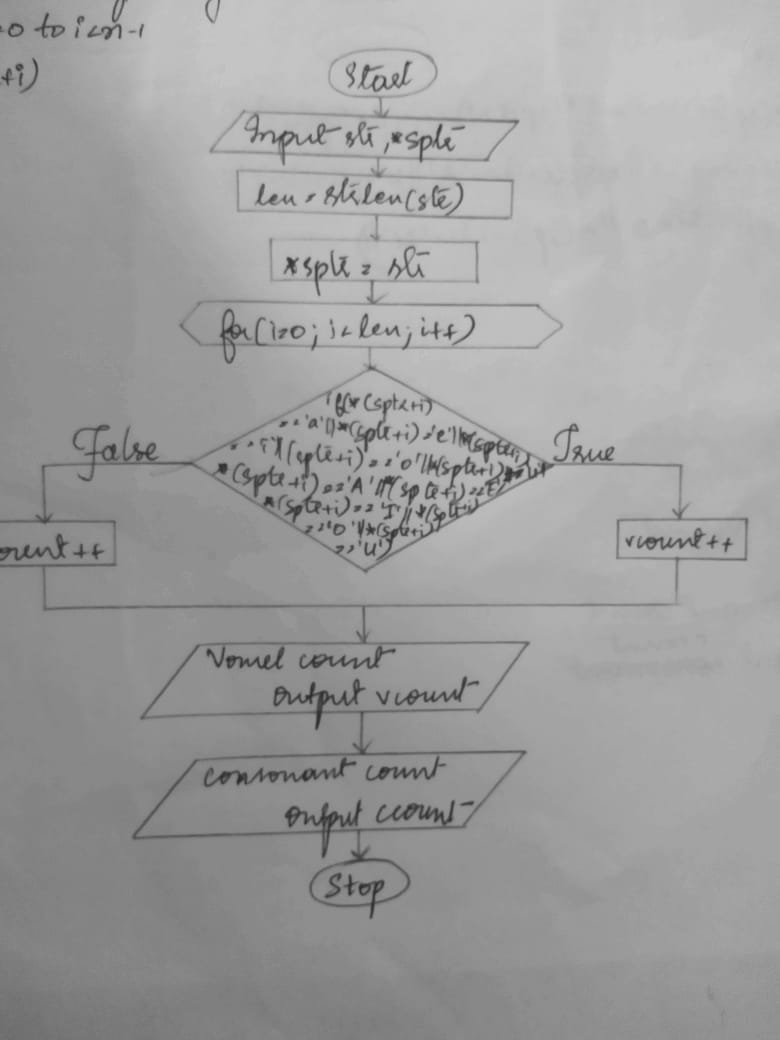 0 to i<n-1
+i)
Start
Input str, *sptr
len = strlen(str)
*sptr = str
for(i=0; i<len; i++)
if(*(sptr+i)
=='a'||*(sptr+i)=='e'||*(sptr+i)
=='i'||(sptr+i)=='o'||*(sptr+i)=='u'||
*(sptr+i)=='A'||*(sptr+i)=='E'||
*(sptr+i)=='I'||*(sptr+i)
=='O'||*(sptr+i)
=='U')
False
True
ount++
vcount++
Vowel count
output vcount
consonant count
output ccount
Stop